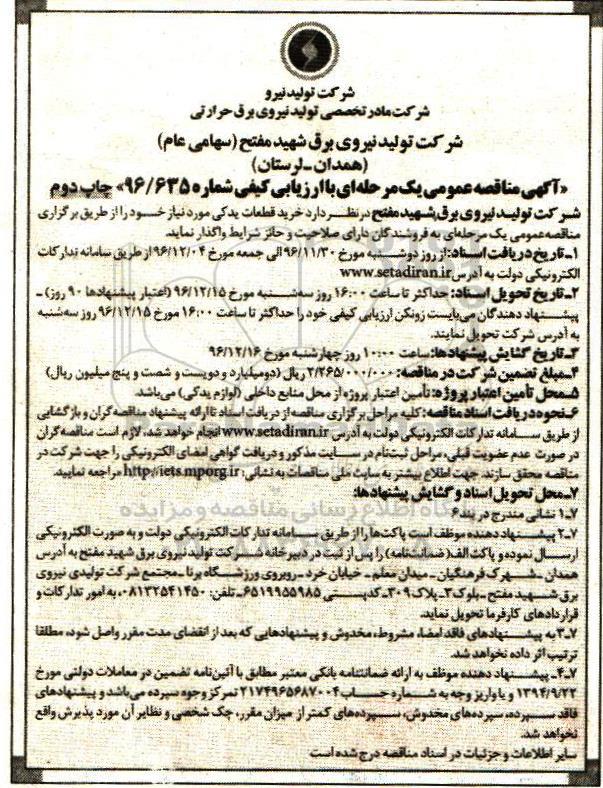 شرکت تولید نیرو
شرکت مادر تخصصی تولید نیروی برق حرارتی
شرکت تولید نیروی برق شهید مفتح (سهامی عام)
(همدان-لرستان)
«آگهی مناقصه عمومی یک مرحله‌ای با ارزیابی کیفی شماره ۹۶/۶۳۵» چاپ دوم
شرکت تولید نیروی برق شهید مفتح در نظر دارد خرید قطعات یدکی مورد نیاز خود را از طریق برگزاری
مناقصه عمومی یک مرحله‌ای به فروشندگان دارای صلاحیت و حائز شرایط واگذار نماید.
۱-تاریخ دریافت اسناد: از روز دوشنبه مورخ ۹۶/۱۱/۳۰ الی جمعه مورخ ۹۶/۱۲/۰۴ از طریق سامانه تدارکات
الکترونیکی دولت به آدرس www.setadiran.ir
۲-تاریخ تحویل اسناد: حداکثر تا ساعت ۱۶:۰۰ روز سه‌شنبه مورخ ۹۶/۱۲/۱۵ (اعتبار پیشنهادها ۹۰ روز) -
پیشنهاد دهندگان می‌بایست زونکن ارزیابی کیفی خود را حداکثر تا ساعت ۱۶:۰۰ مورخ ۹۶/۱۲/۱۵ روز سه‌شنبه
به آدرس شرکت تحویل نمایند.
۳-تاریخ گشایش پیشنهادها: ساعت ۱۰:۰۰ روز چهارشنبه مورخ ۹۶/۱۲/۱۶
۴-مبلغ تضمین شرکت در مناقصه: ۲/۲۶۵/۰۰۰/۰۰۰ ریال (دو میلیارد و دویست و شصت و پنج میلیون ریال)
۵-محل تأمین اعتبار پروژه: تأمین اعتبار پروژه از محل منابع داخلی (لوازم یدکی) می‌باشد.
۶-نحوه دریافت اسناد مناقصه: کلیه مراحل برگزاری مناقصه از دریافت اسناد تا ارائه پیشنهاد مناقصه‌گران و بازگشایی
از طریق سامانه تدارکات الکترونیکی دولت به آدرس www.setadiran.ir انجام خواهد شد. لازم است مناقصه‌گران
در صورت عدم عضویت قبلی، مراحل ثبت‌نام در سایت مذکور و دریافت گواهی امضای الکترونیکی را جهت شرکت در
مناقصه محقق سازند. جهت اطلاع بیشتر به سایت ملی مناقصات به نشانی: http://iets.mporg.ir مراجعه نمایید.
۷-محل تحویل اسناد و گشایش پیشنهادها:
۷-۱ نشانی مندرج در بند ۶
۷-۲ پیشنهاد دهنده موظف است پاکت‌ها را از طریق سامانه تدارکات الکترونیکی دولت و به صورت الکترونیکی
ارسال نموده و پاکت الف (ضمانتنامه) را پس از ثبت در دبیرخانه در شرکت تولید نیروی برق شهید مفتح به آدرس
همدان - شهرک فرهنگیان - میدان معلم - خیابان خرد - روبروی ورزشگاه برنا - مجتمع شرکت تولیدی نیروی
برق شهید مفتح - بلوک ۳ - پلاک ۳۰۹ - کدپستی ۶۵۱۹۹۵۵۹۸۵ - تلفن: ۰۸۱۳۲۵۴۱۴۵۰، به امور تدارکات و
قراردادهای کارفرما تحویل نماید.
۷-۳ به پیشنهادهای فاقد امضا، مشروط، مخدوش و پیشنهادهایی که بعد از انقضای مدت مقرر واصل شود، مطلقا
ترتیب اثر داده نخواهد شد.
۷-۴- پیشنهاد دهنده موظف به ارائه ضمانتنامه بانکی معتبر مطابق با آئین‌نامه تضمین در معاملات دولتی مورخ
۱۳۹۴/۹/۲۲ و یا واریز وجه به شماره حساب ۲۱۷۴۹۶۵۶۸۷۰۰۴ تمرکز وجوه سپرده می‌باشد و پیشنهادهای
فاقد سپرده، سپرده‌های مخدوش، سپرده‌های کمتر از میزان مقرر، چک شخصی و نظایر آن مورد پذیرش واقع
نخواهد شد.
سایر اطلاعات و جزئیات در اسناد مناقصه درج شده است